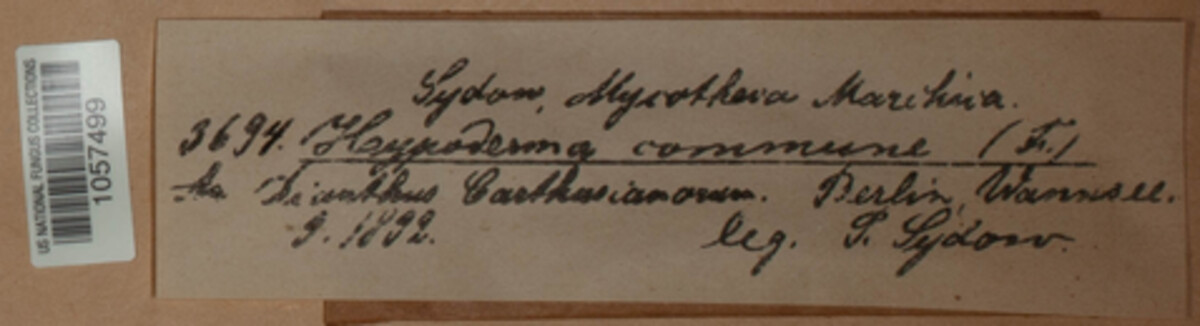 US NATIONAL FUNGUS COLLECTIONS
1057499
Sydow, Mycotheca Marchica.
3694. Hypoderma commune (Fr.)
An Dianthus Carthusianorum. Berlin, Wannsee.
9. 1892. leg. P. Sydow.